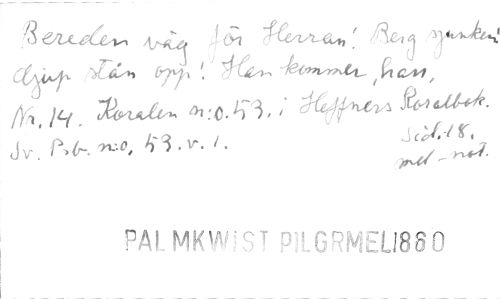 Bereden väg för Herran! Berg sjunken!
djup stån opp! Han kommer, han,
Nr. 14. Koralen n:o. 53. i Hæffners Koralbok.
Sid. 18.
Sv. Psb. n:o. 53. v. 1.
med - not.
PALMKWIST PILGRMEL1860